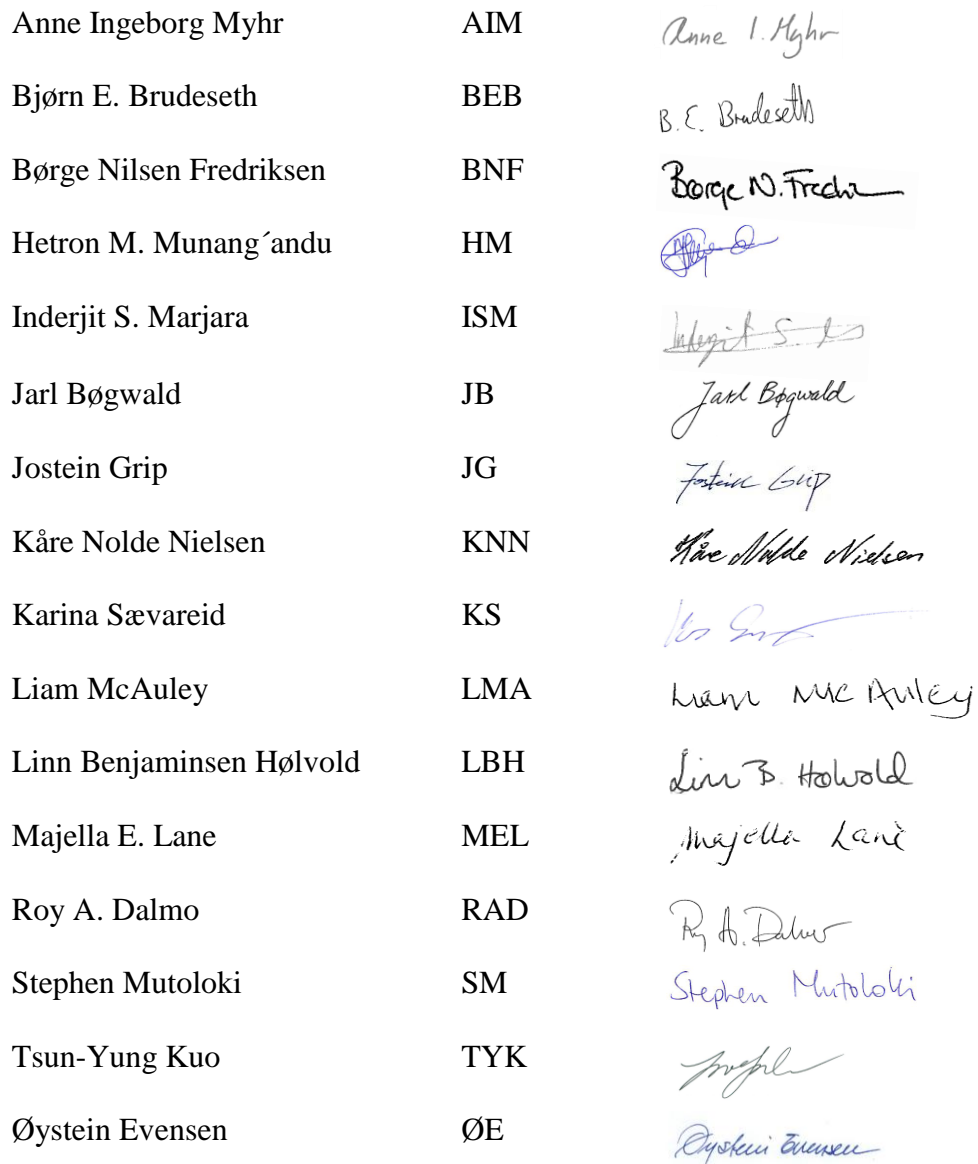 Anne Ingeborg Myhr AIM Anne I. Myhr
Bjørn E. Brudeseth BEB B. E. Brudeseth
Børge Nilsen Fredriksen BNF Børge N. Fredri
Hetron M. Munang´andu HM
Inderjit S. Marjara ISM Inderjit S.
Jarl Bøgwald JB Jarl Bøgwald
Jostein Grip JG Jostein Grip
Kåre Nolde Nielsen KNN Kåre Nolde Nielsen
Karina Sævareid KS
Liam McAuley LMA Liam McAuley
Linn Benjaminsen Hølvold LBH Linn B. Hølvold
Majella E. Lane MEL Majella Lane
Roy A. Dalmo RAD Roy A. Dalmo
Stephen Mutoloki SM Stephen Mutoloki
Tsun-Yung Kuo TYK
Øystein Evensen ØE Øystein Evensen